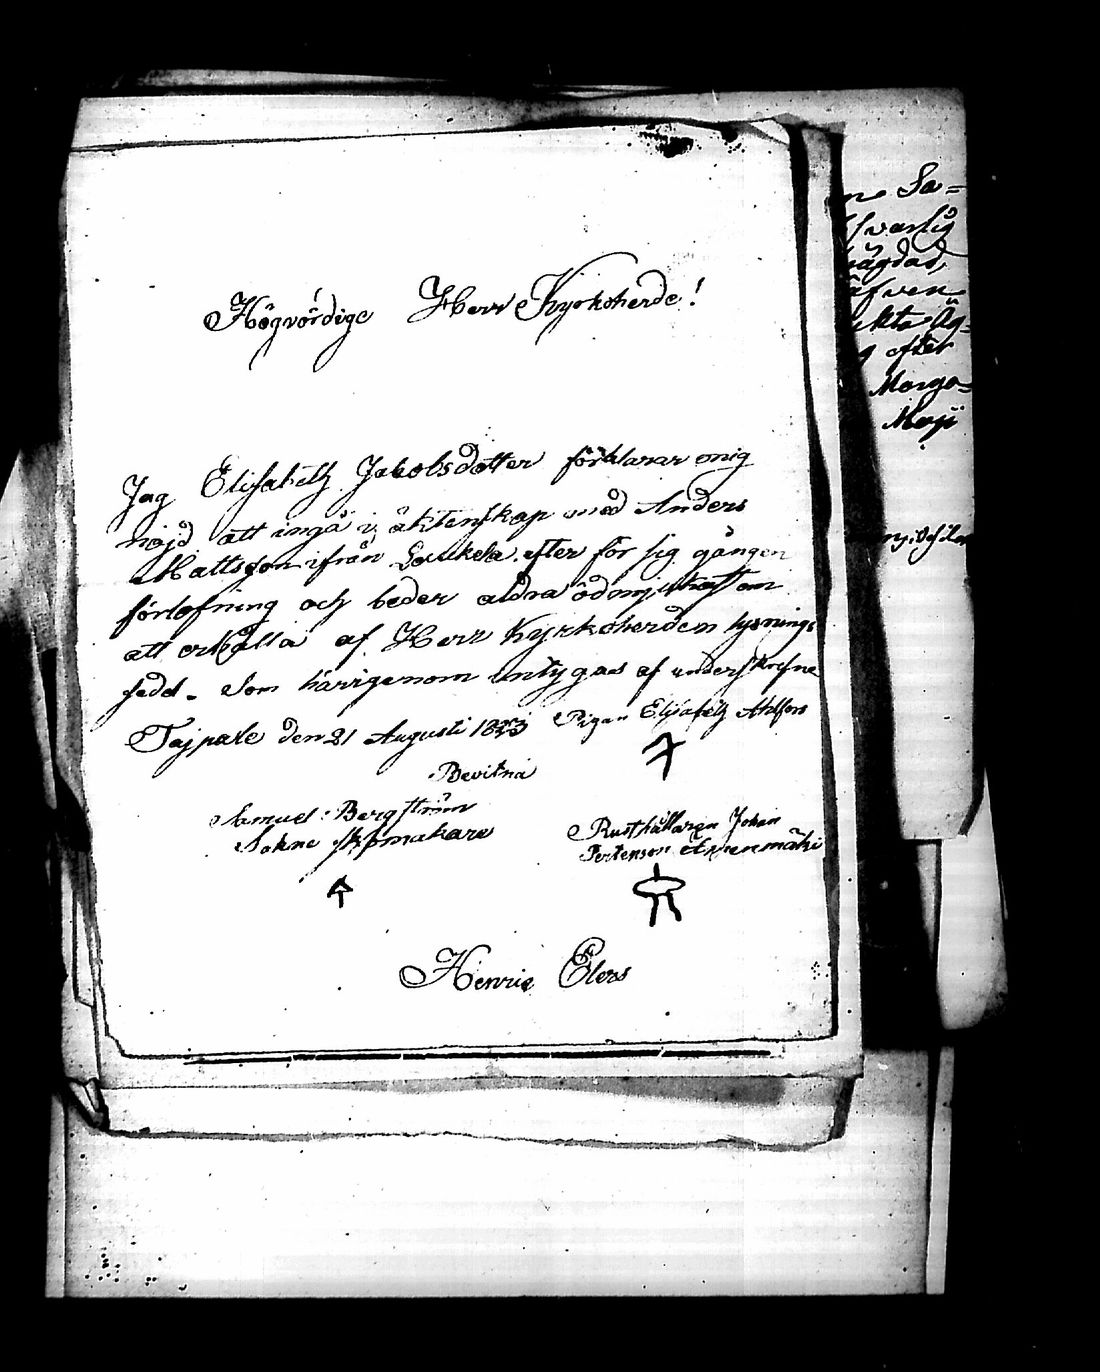 Högvördige Herr Kyrkoherde!
Jag Elisabeth Jakobsdotter förklarar mig
nöjd att ingå i äktenskap med Anders
Mattsson ifrån Loukela efter för sig gången
förlofning och beder aldra ödmjukast om
att erhålla af Herr Kyrkoherden lysnings
sedel. Som härigenom intygas af underskrefne
Tajpale den 21 Augusti 1833 Pigan Elisabeth Ahlfors
Bevitna
Samuel Bergström
Sokne Skomakare
Rusthållaren Johan
Pertenson
Henric Elers
Sa=
svarlig
äfven
efter
Marga=
Maji